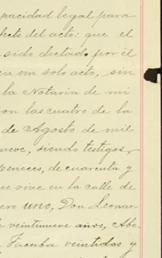 pacidad legal para
ecto del acto: que el
sido dictado por él
en un solo acto, sin
la Notaría de mi
on las cuatro de la
de Agosto de mil
ueve, siendo testigos,
de cuarenta y
ue vive en la calle de
ero uno, Don
veintinueve años,
veintidos y